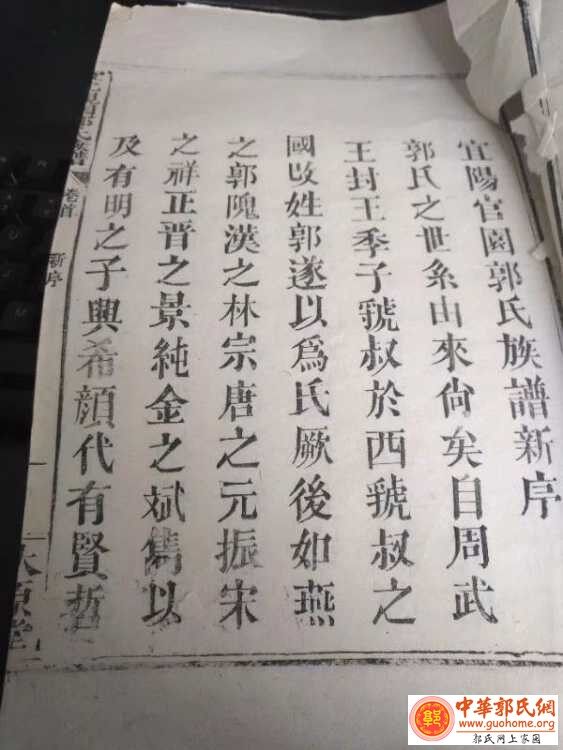 宜陽官園郭氏族譜新序
郭氏之世系由來尙矣自周武
王封王季子虢叔於西虢叔之
國改姓郭遂以爲氏厥後如燕
之郭隗漢之林宗唐之元振宋
之祥正晋之景純金之斌雋以
及有明之子興希顔代有賢哲
郭氏族譜
卷首
新序
太原堂
中華郭氏網
www.guohome.org
郭氏网上家园